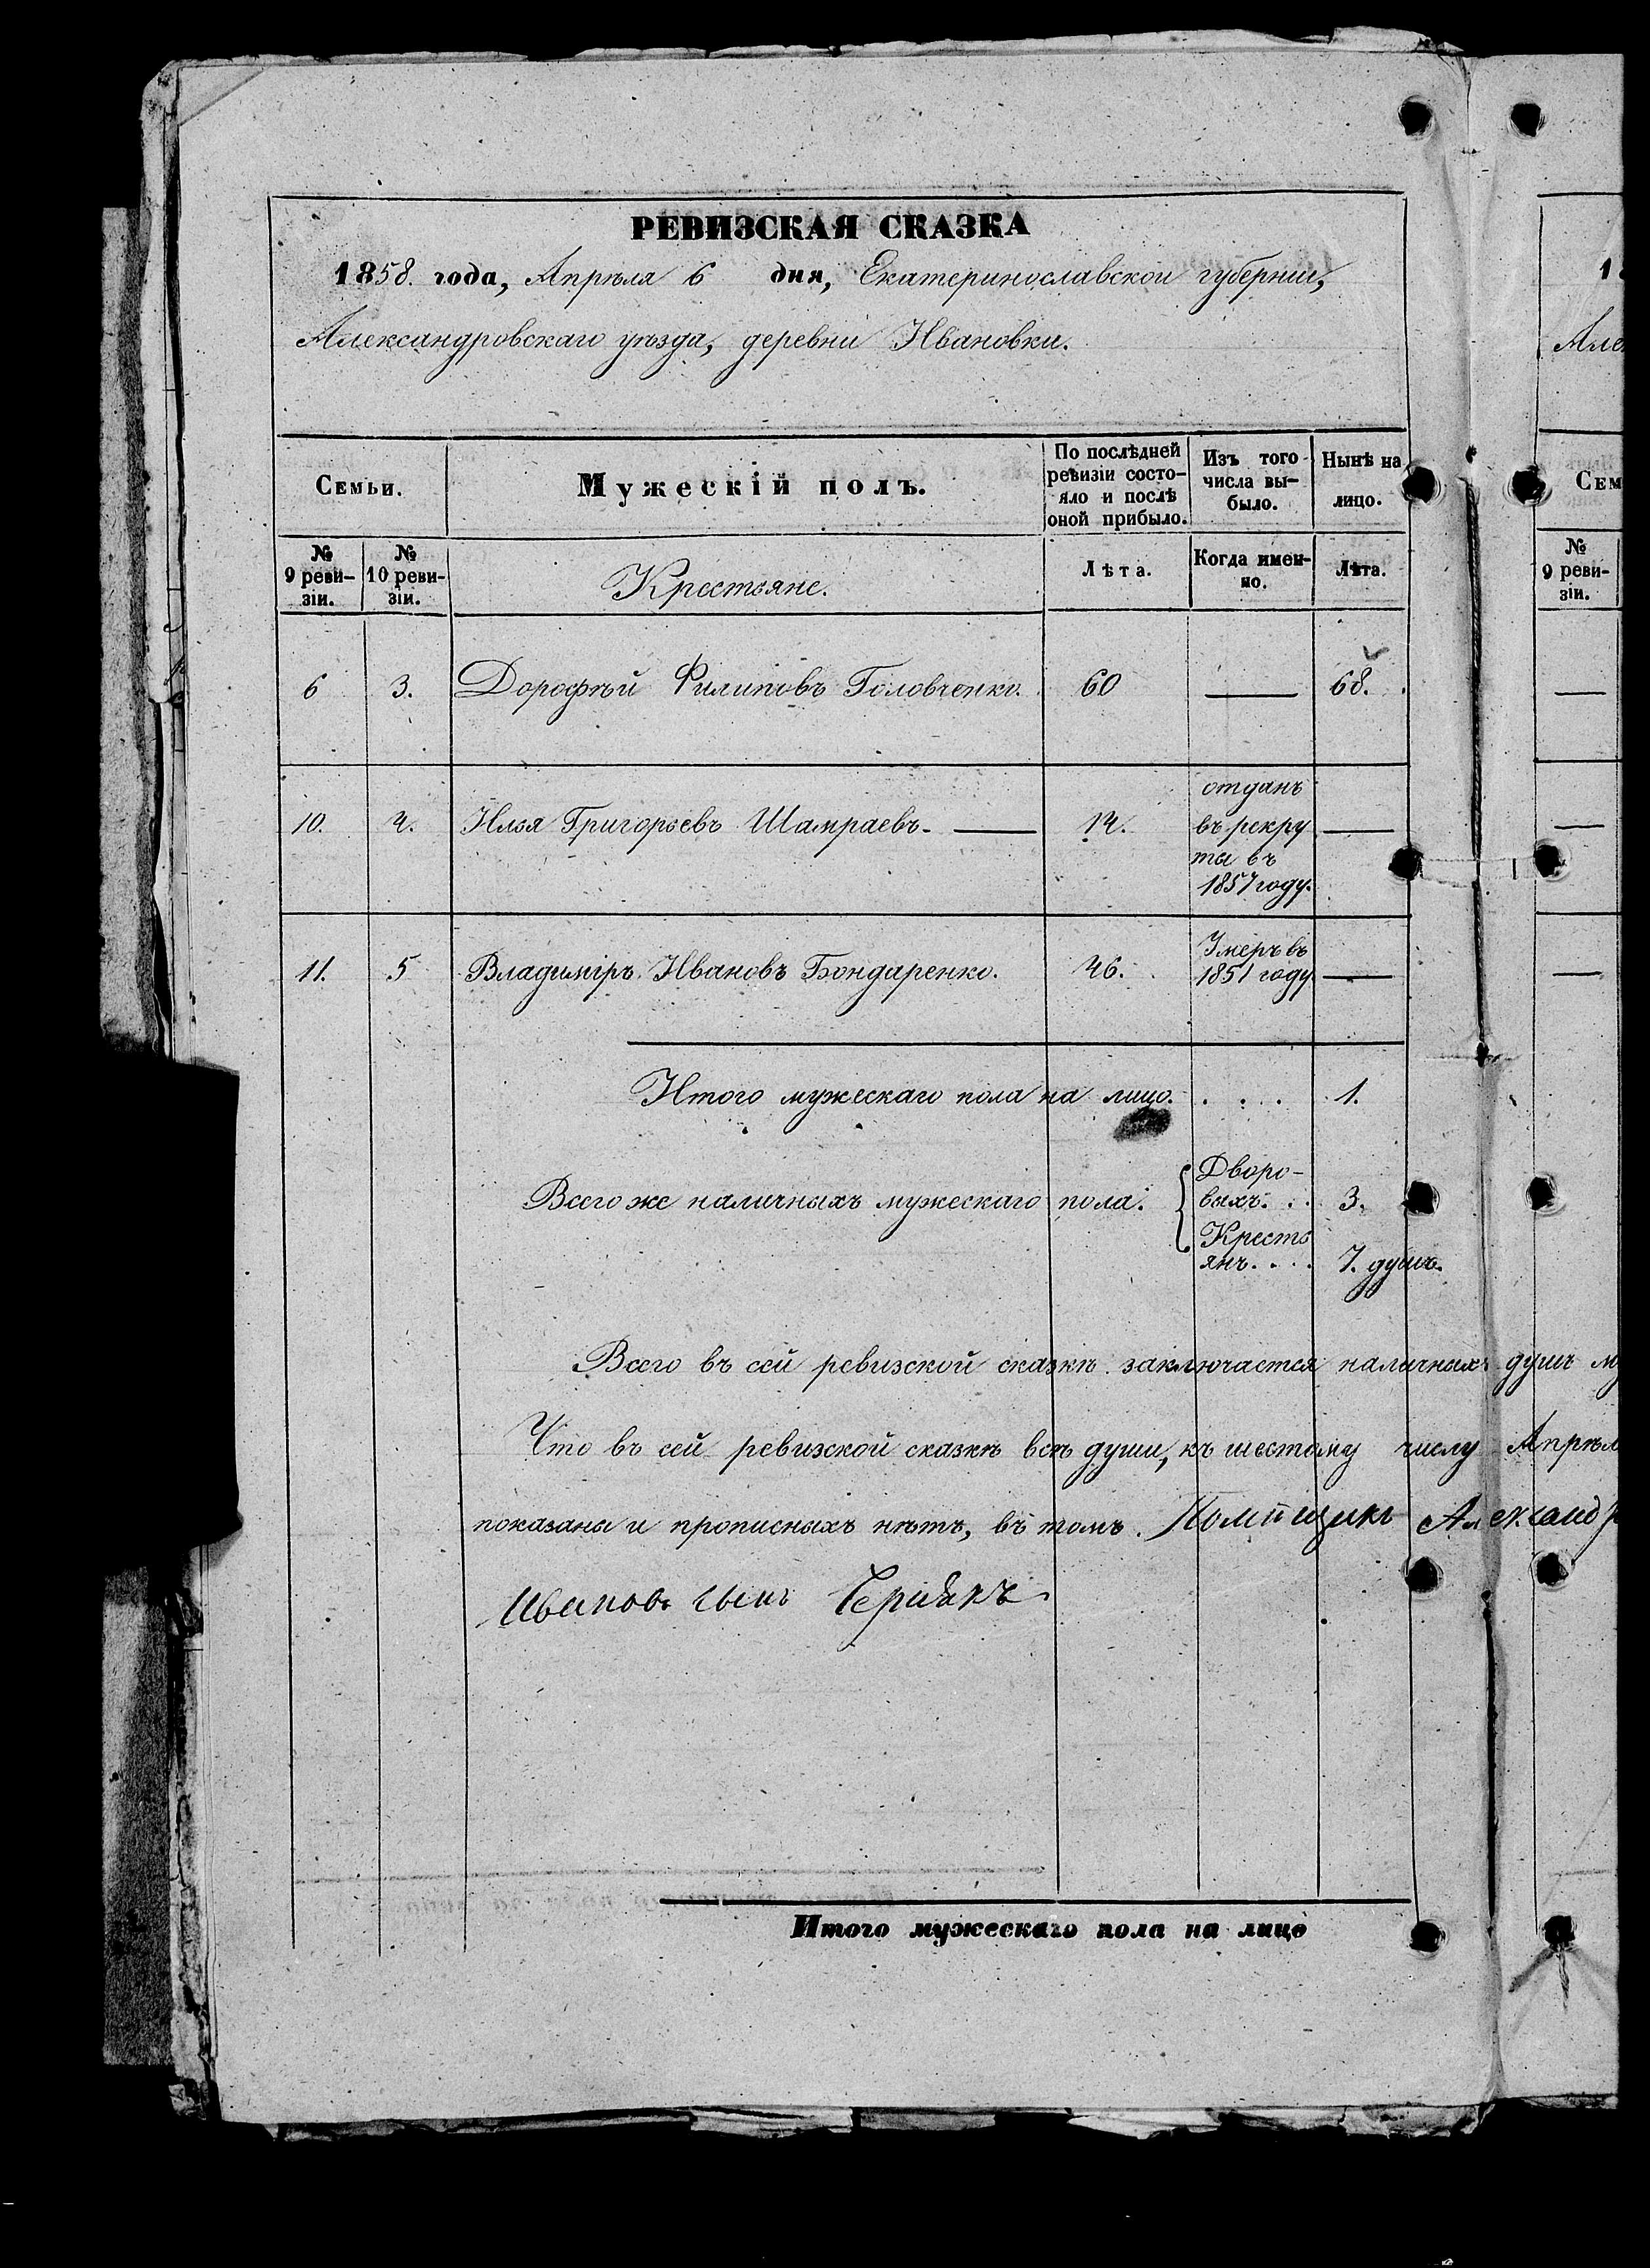 РЕВИЗСКАЯ СКАЗКА
1858. года, Апрѣля 6 дня, Екатеринославской губерніи,
Александровскаго уѣзда, деревни Ивановки.
Семьи.
Мужескій полъ.
По послѣдней
ревизіи состо-
яло и послѣ
оной прибыло.
Изъ того
числа вы-
было.
Нынѣ на
лицо.
№
9 реви-
зіи.
№
10 реви-
зіи.
Крестьяне.
Лѣта.
Когда имен-
но.
Лѣта.
6 3. Дорофѣй Филиповъ Головченко. 60 — 68.
10. 4. Илья Григорьевъ Шамраевъ. — 14. отданъ
въ рекру
ты въ
1857 году. —
11. 5 Владиміръ Ивановъ Бондаренко. 46. Умеръ въ
1851 году —
Итого мужескаго пола на лицо. . . . 1.
Всего же наличныхъ мужескаго пола. { Дворо-
выхъ. . . 3.
Кресть
янъ. . . . 7. душъ.
Всего въ сей ревизской сказкѣ заключается наличныхъ душъ му
Что въ сей ревизской сказкѣ всѣ души, къ шестому числу Апрѣл
показаны и прописныхъ нѣтъ, въ томъ. Помѣщикъ Александр
Ивановъ сынъ
Итого мужескаго пола на лицо
1
Але
Сем
№
9 реви-
зіи.
—
—
—